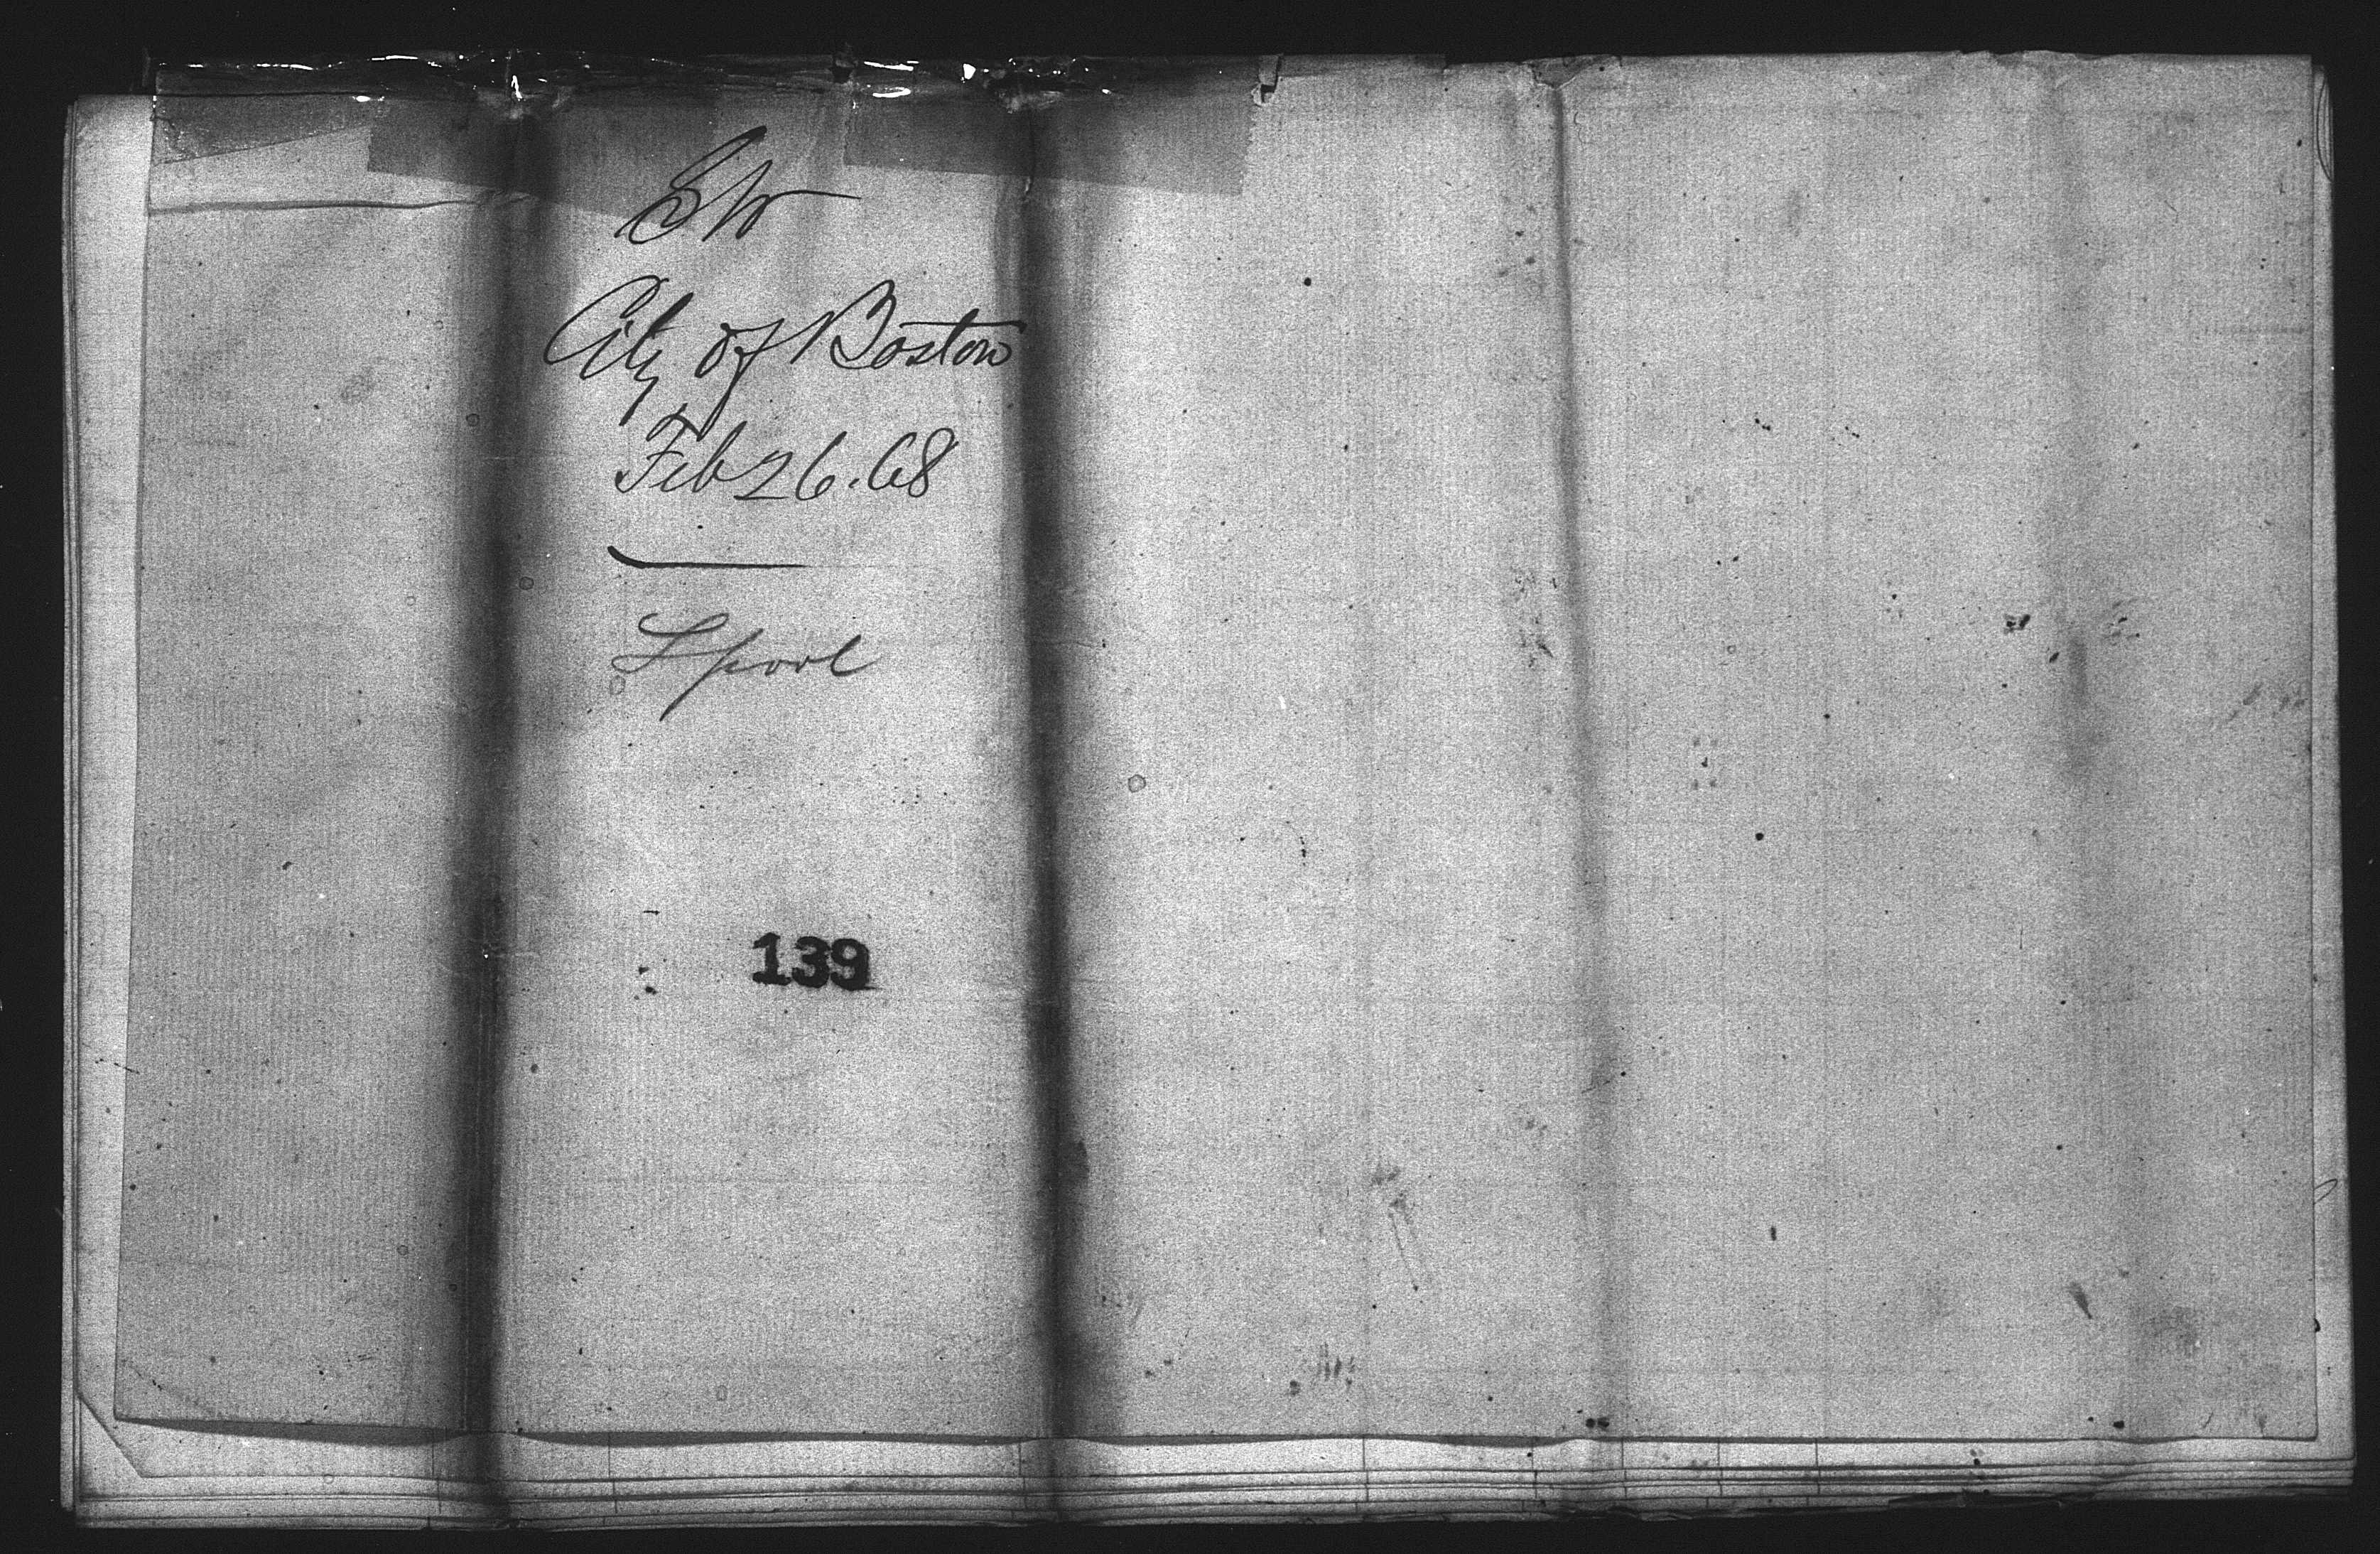 SW
City of Boston
Feb 26. 68
Lpool
139